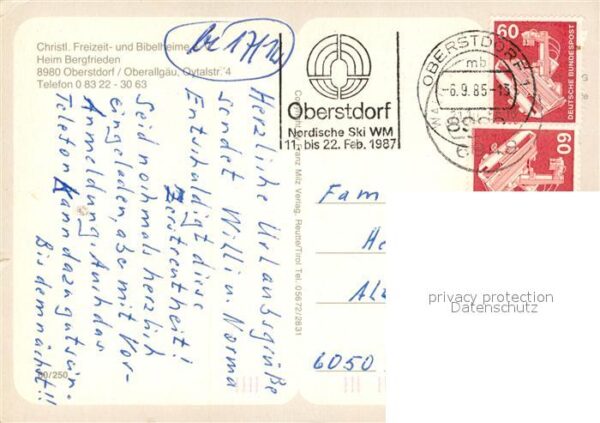 Christl. Freizeit- und Bibelheime
Heim Bergfrieden
8980 Oberstdorf / Oberallgäu, Oytalstr. 4
Telefon 0 83 22 - 30 63
Herzliche Urlaubsgrüße
sendet Willi u. Norma
Entschuldigt diese
Zerstreutheit!
Seid nochmals herzlich
eingeladen, aber mit Vor-
Anmeldung. Auch das
Telefon kann dazu gut sein.
Bis demnächst!!
80/250
Franz Milz Verlag, Reutte/Tirol Tel. 05672/2831
Oberstdorf
Nordische Ski WM
11. bis 22. Feb. 1987
OBERSTDORF 1
mb
-6.9.85-15
8980
60
DEUTSCHE BUNDESPOST
60
Fam
He
6050
privacy protection
Datenschutz